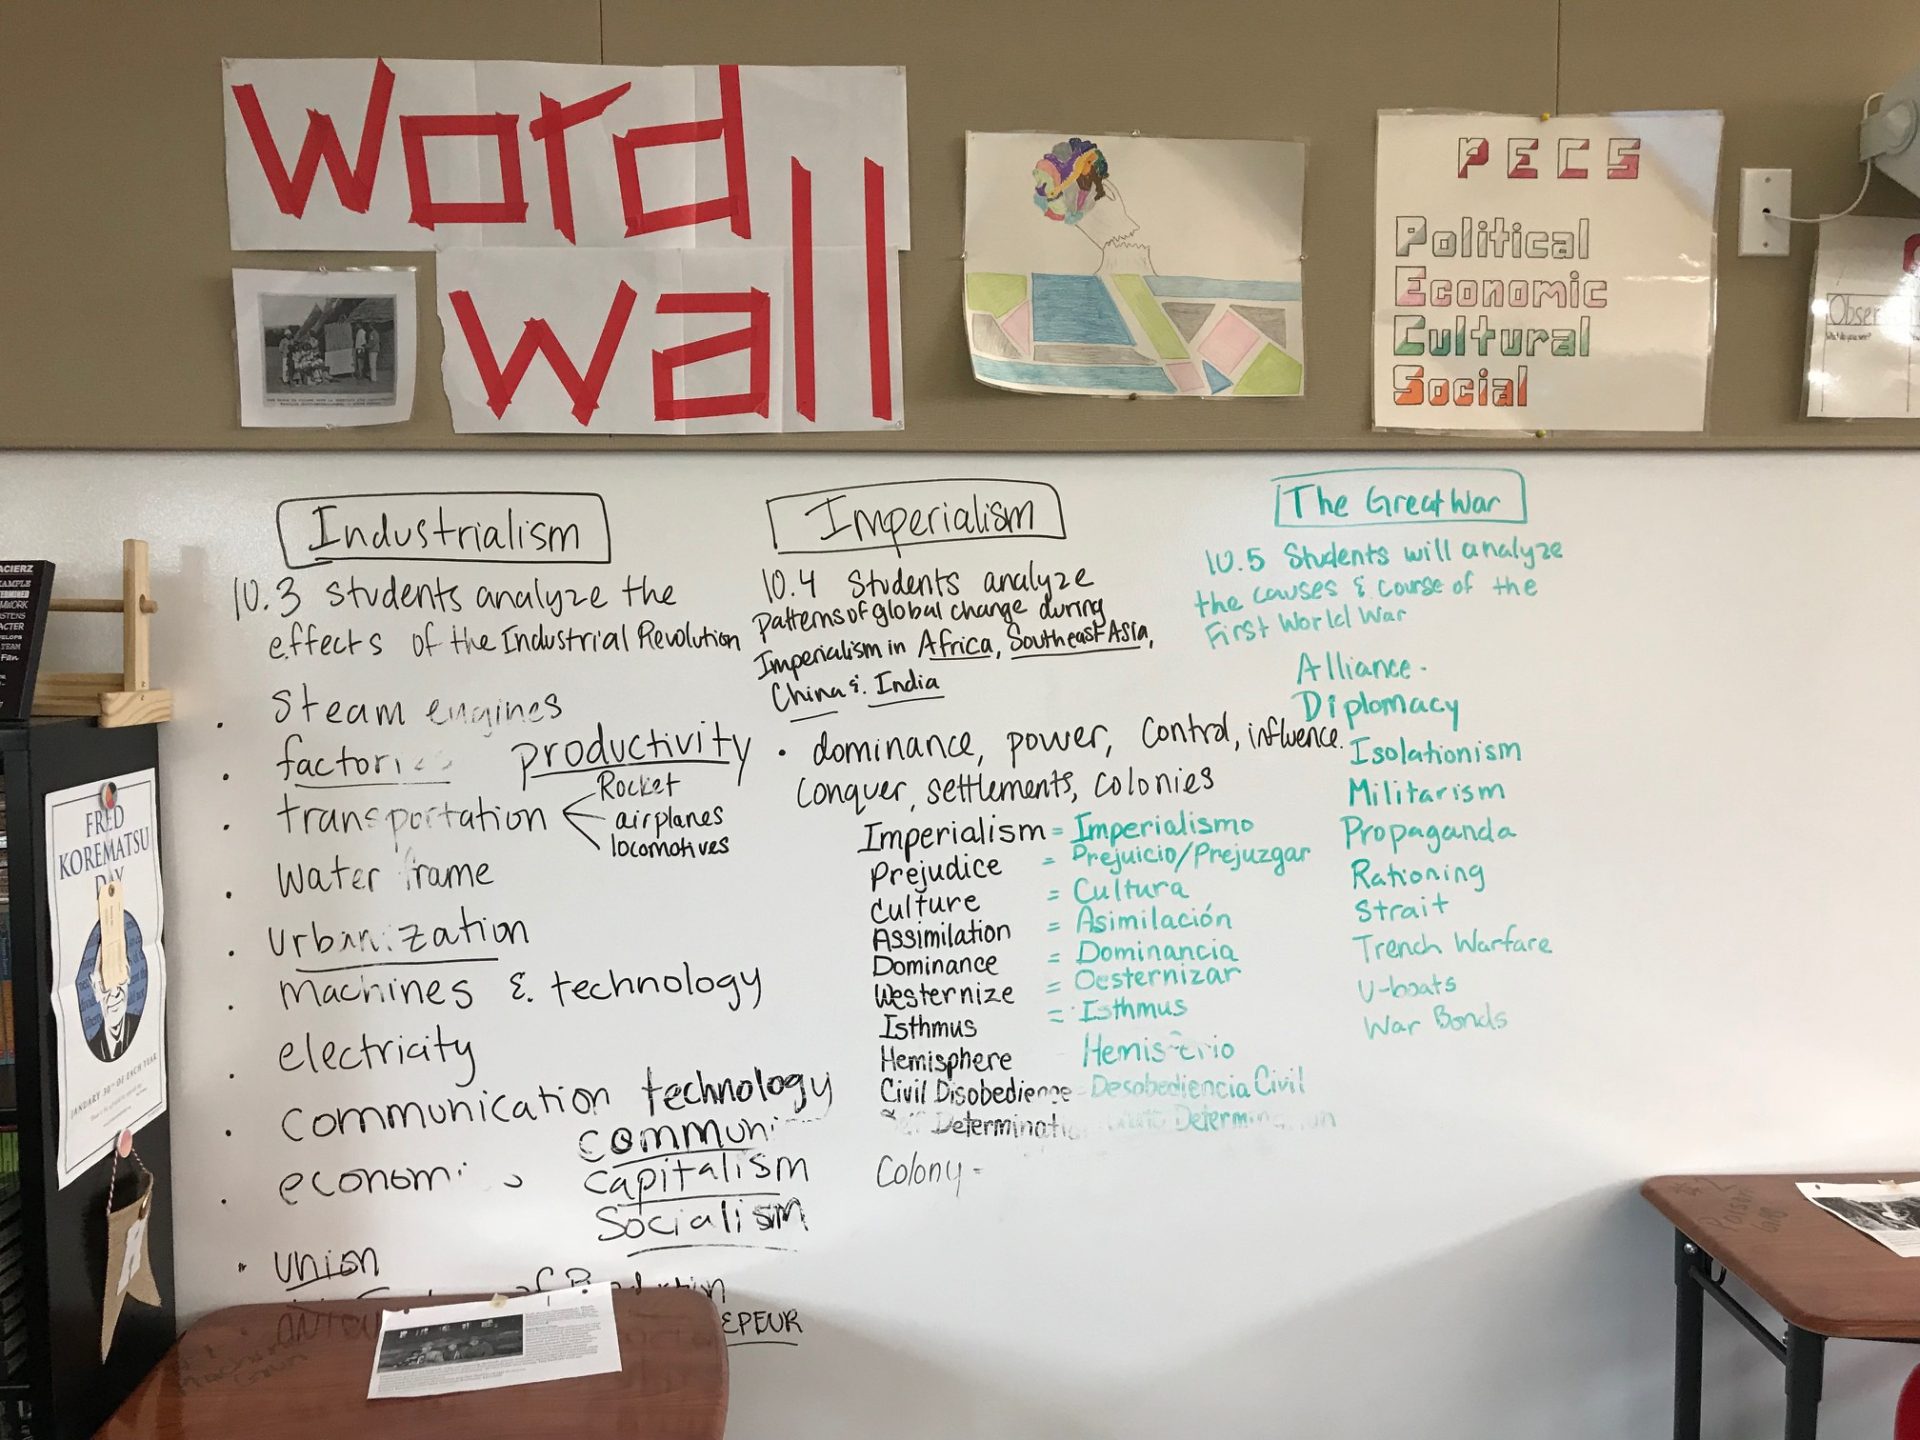 Word
Wall
PECS
Political
Economic
Cultural
Social
Obser
ACIERZ
EXAMPLE
TEAM
Fan
FRED
KOREMATSU
DAY
JANUARY 30TH OF EACH YEAR
Industrialism
10.3 Students analyze the
effects of the Industrial Revolution
• Steam engines
• factories productivity
• transportation Rocket
airplanes
locomotives
• Water frame
• Urbanization
• Machines & technology
• electricity
• Communication technology
communi
• economi
Capitalism
Socialism
• Union
of
EPEUR
Imperialism
10.4 Students analyze
patterns of global change during
Imperialism in Africa, Southeast Asia,
China & India
• dominance, power, control, influence.
Conquer, settlements, colonies
Imperialism = Imperialismo
Prejudice = Prejuicio/Prejuzgar
Culture = Cultura
Assimilation = Asimilación
Dominance = Dominancia
Westernize = Oesternizar
Isthmus = Isthmus
Hemisphere Hemisferio
Civil Disobedience - Desobediencia Civil
Self Determinati Determination
Colony -
The Great War
10.5 Students will analyze
the causes & course of the
First World War
Alliance.
Diplomacy
Isolationism
Militarism
Propaganda
Rationing
Strait
Trench Warfare
U-boats
War Bonds